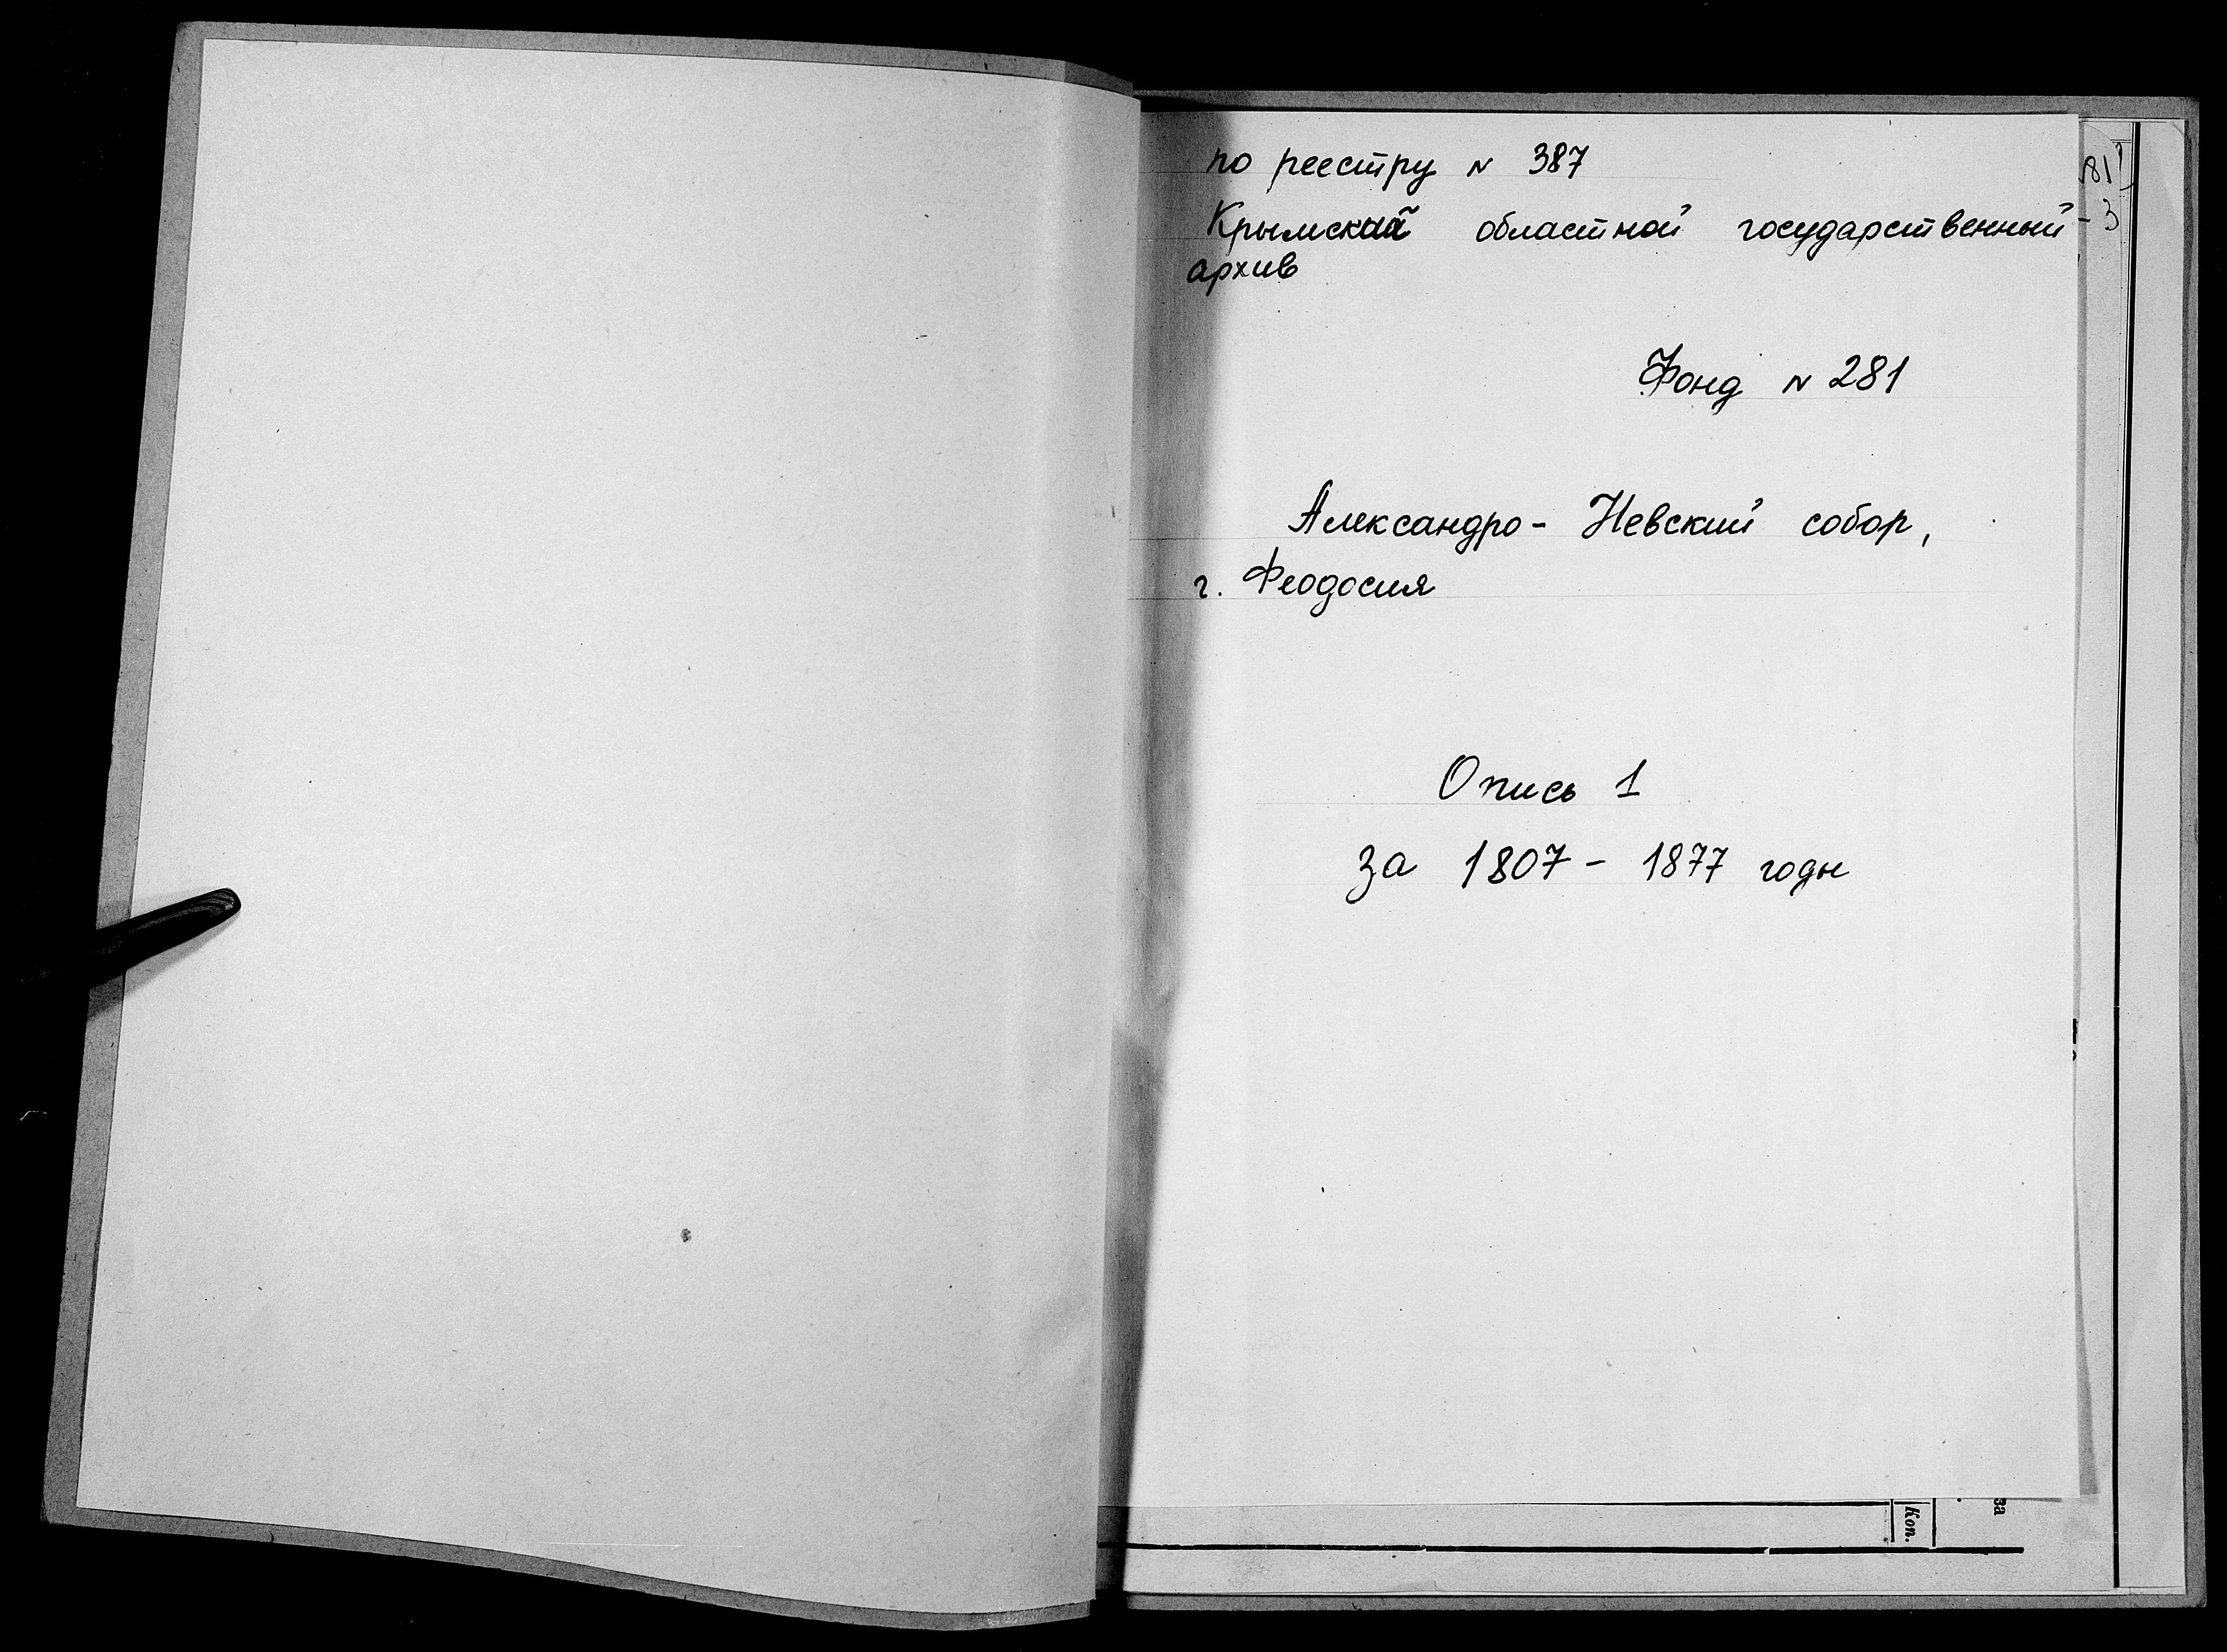 по реестру N 387
Крымский областной государственный
архив
Фонд N 281
Александро-Невский собор,
г. Феодосия
Опись 1
за 1807 - 1877 годы
81
3
за
Коп.